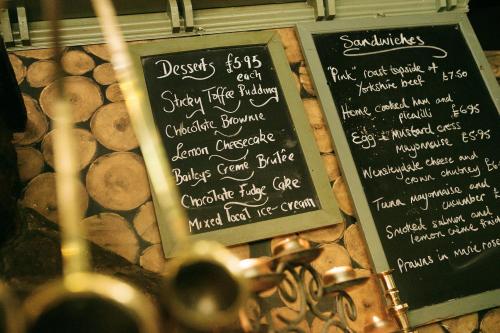 Desserts £5.95
each
Sticky Toffee Pudding
Chocolate Brownie
Lemon Cheesecake
Baileys Creme Brulée
Chocolate Fudge Cake
Mixed local ice-cream
Sandwiches
"Pink" roast topside of
Yorkshire beef £7.50
Home cooked ham and
picalilli £6.95
Egg + Mustard cress
Mayonnaise £5.95
Wensleydale cheese and
crown chutney
Tuna mayonnaise and
cucumber
Smoked salmon and
lemon crème
Prawns in marie rose